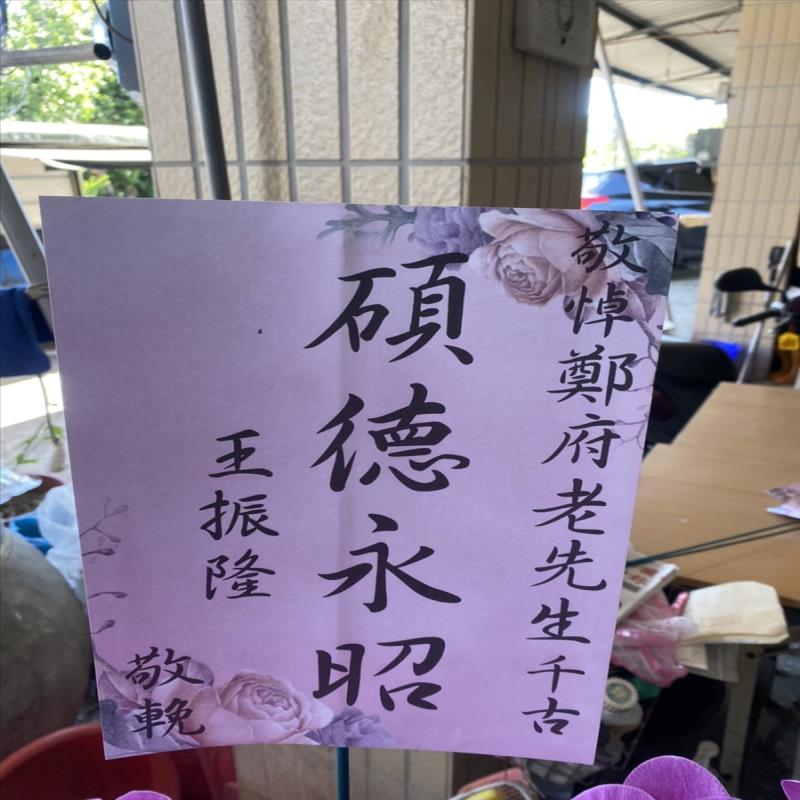 敬悼鄭府老先生千古
碩德永昭
王振隆
敬輓